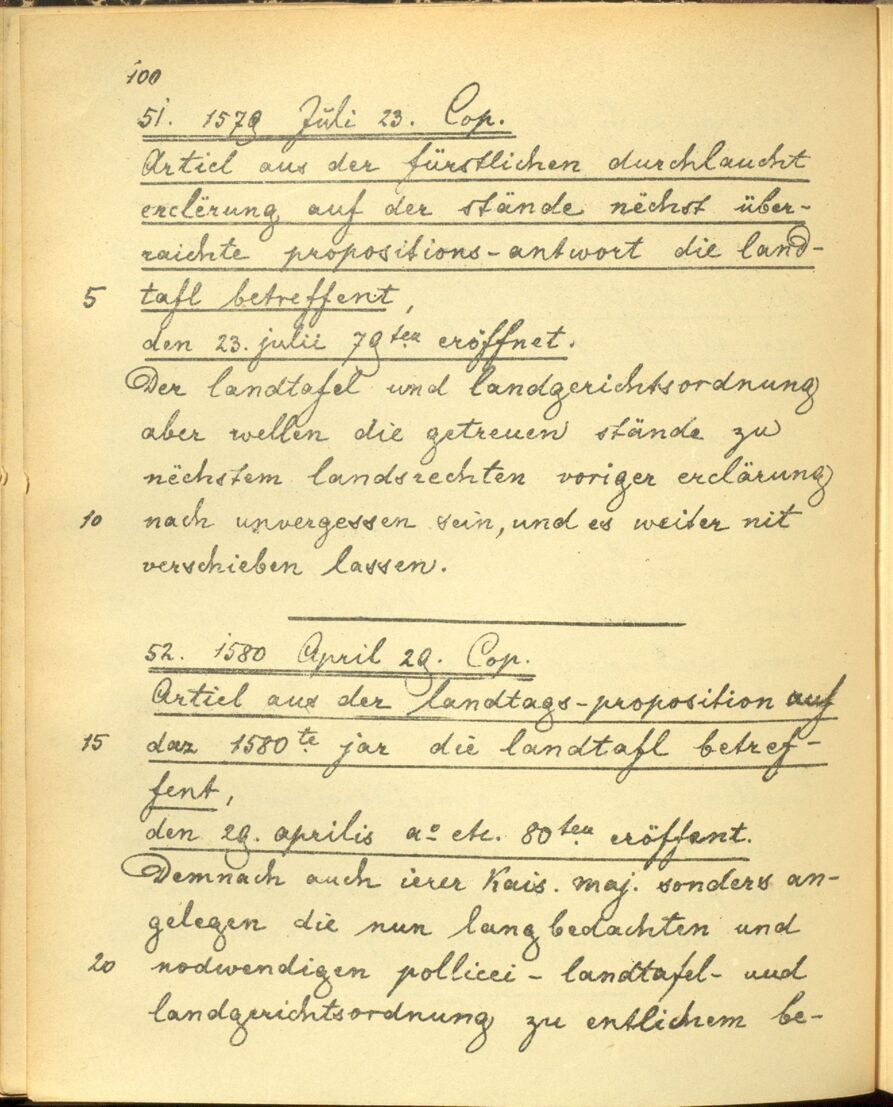 100
51. 1579 Juli 23. Cop.
Articl aus der fürstlichen durchlaucht
erclërung auf der stände nëchst über-
raichte propositions-antwort die land-
5 tafl betreffent,
den 23. julii 79ten eröffnet.
Der landtafel und landgerichtsordnung
aber wellen die getreuen stände zu
nëchstem landsrechten voriger erclärung
10 nach unvergessen sein, und es weiter nit
verschieben lassen.
52. 1580 April 29. Cop.
Articl aus der landtags-proposition auf
15 daz 1580te jar die landtafl betref-
fent,
den 29. aprilis ao etc. 80ten eröffent.
Demnach auch ierer Kais. maj. sonders an-
gelegen die nun lang bedachten und
20 nodwendigen pollicei- landtafel- und
landgerichtsordnung zu entlichem be-